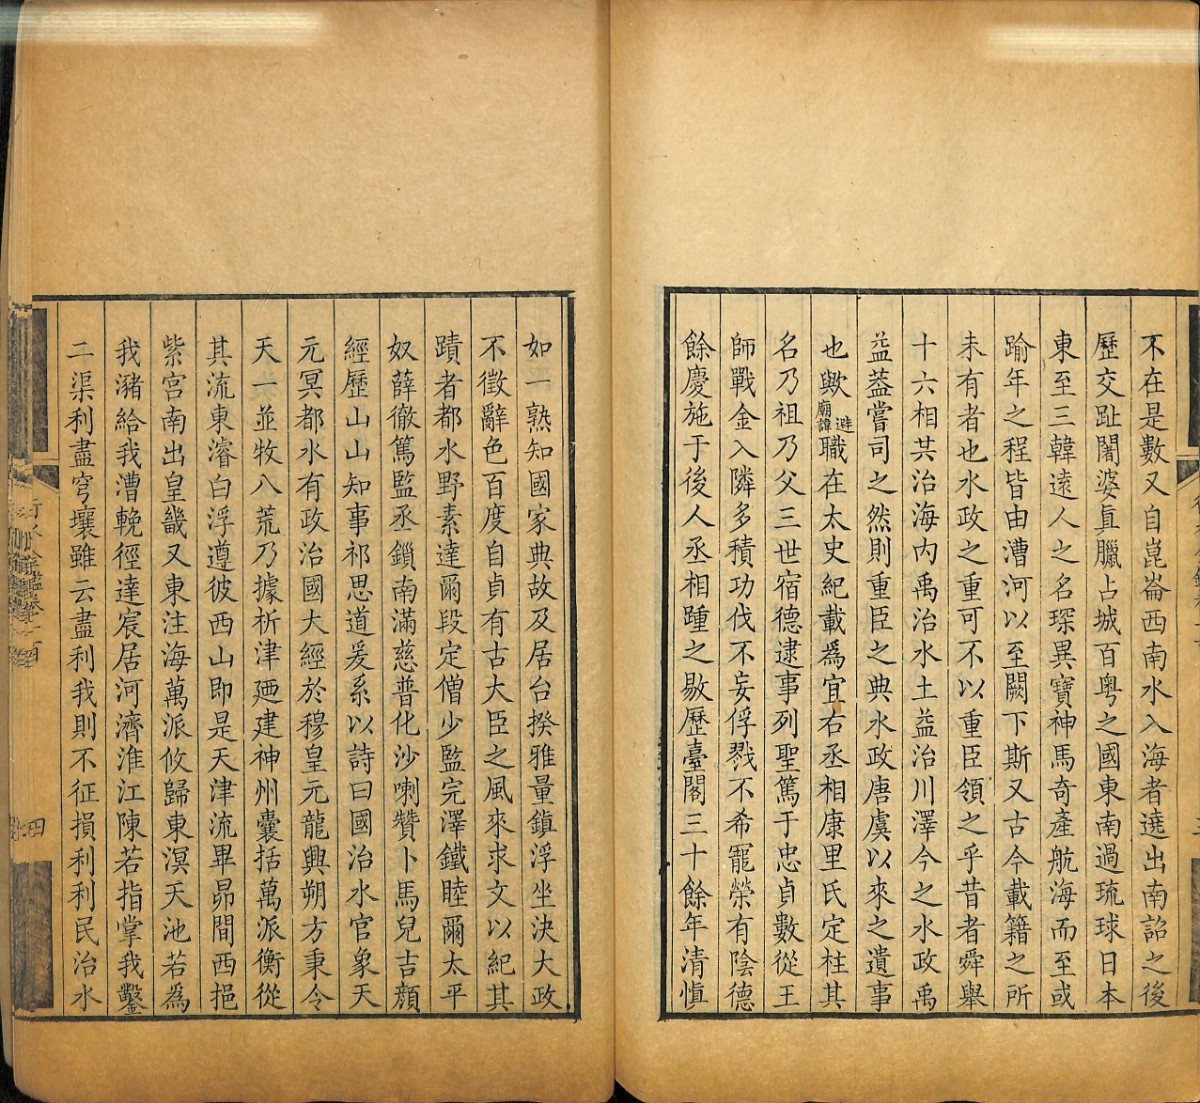 不在是數又自崑崙西南水入海者遶出南詔之後
歷交趾闍婆眞臘占城百粵之國東南過琉球日本
東至三韓遠人之名琛異寶神馬奇產航海而至或
踰年之程皆由漕河以至闕下斯又古今載籍之所
未有者也水政之重可不以重臣領之乎昔者舜舉
十六相共治海內禹治水土益治川澤今之水政禹
益葢嘗司之然則重臣之典水政唐虞以來之遺事
也歟避廟諱職在太史紀載爲宜右丞相康里氏定柱其
名乃祖乃父三世宿德逮事列聖篤于忠貞數從王
師戰金入隣多積功伐不妄俘戮不希寵榮有陰德
餘慶施于後人丞相踵之敭歷臺閣三十餘年清愼
如一熟知國家典故及居台揆雅量鎮浮坐決大政
不徵辭色百度自貞有古大臣之風來求文以紀其
蹟者都水野素達爾段定僧少監完澤鐵睦爾太平
奴薛徹篤監丞鎻南滿慈普化沙喇贊卜馬兒吉顏
經歷山山知事祁思道爰系以詩曰國治水官象天
元冥都水有政治國大經於穆皇元龍興朔方秉令
天一並牧八荒乃據析津廼建神州囊括萬派衡從
其流東濬白浮遵彼西山即是天津流畢昴間西挹
紫宮南出皇畿又東注海萬派攸歸東溟天池若爲
我瀦給我漕輓徑達宸居河濟淮江陳若指掌我鑿
二渠利盡穹壤雖云盡利我則不征損利利民治水